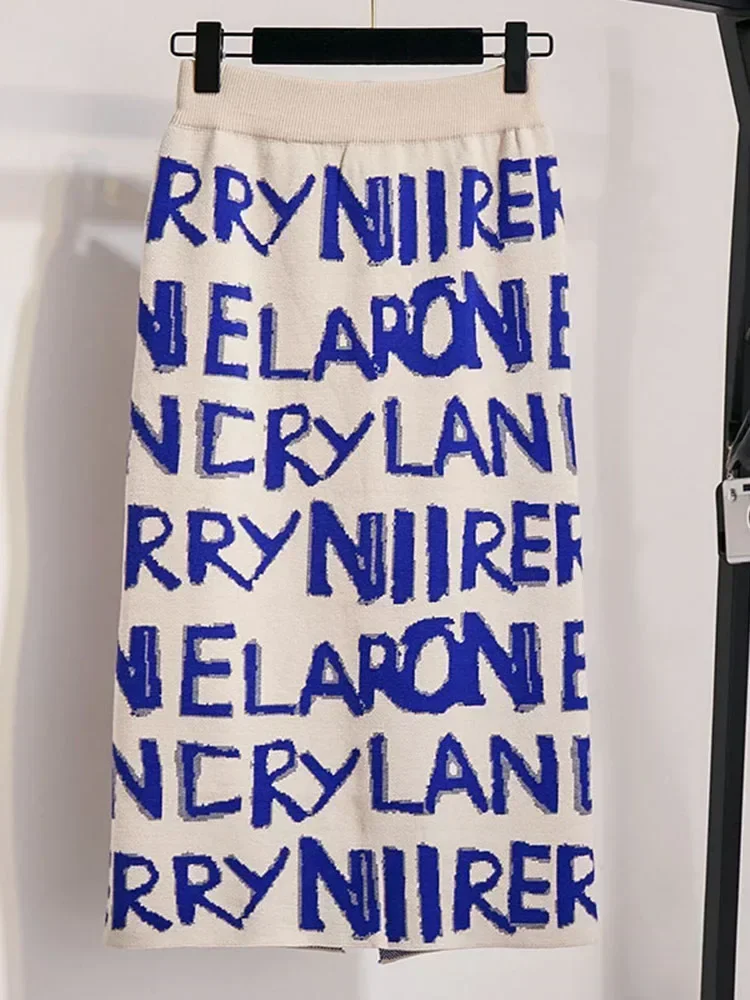 RRY NIIRER
N ELARONE
N CRY LAND
RRY NIIRER
N ELARONE
N CRY LANI
RRY NIIRER